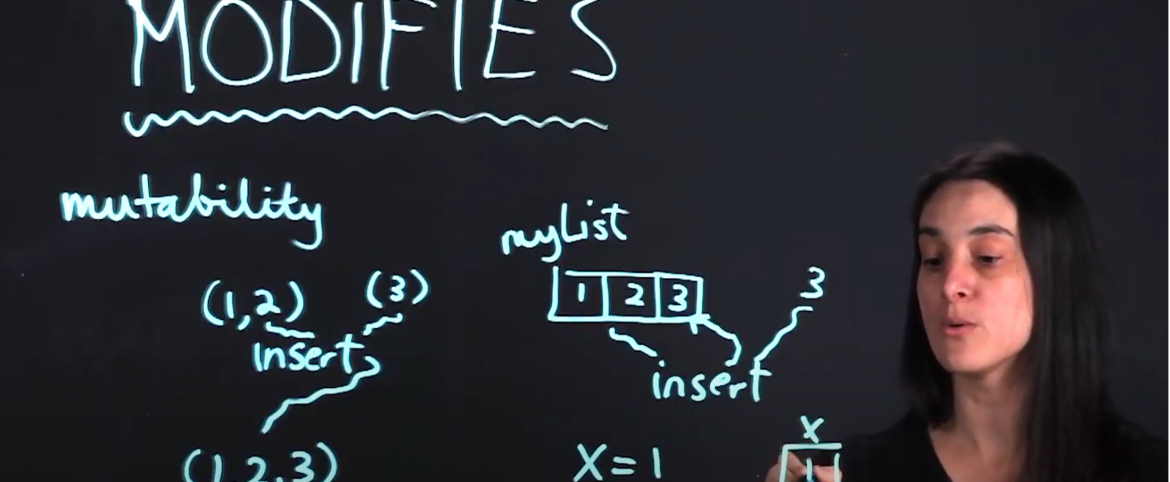 MODIFIES
mutability
(1,2) (3)
insert
(1,2,3)
myList
1 2 3
3
insert
X=1
X
1